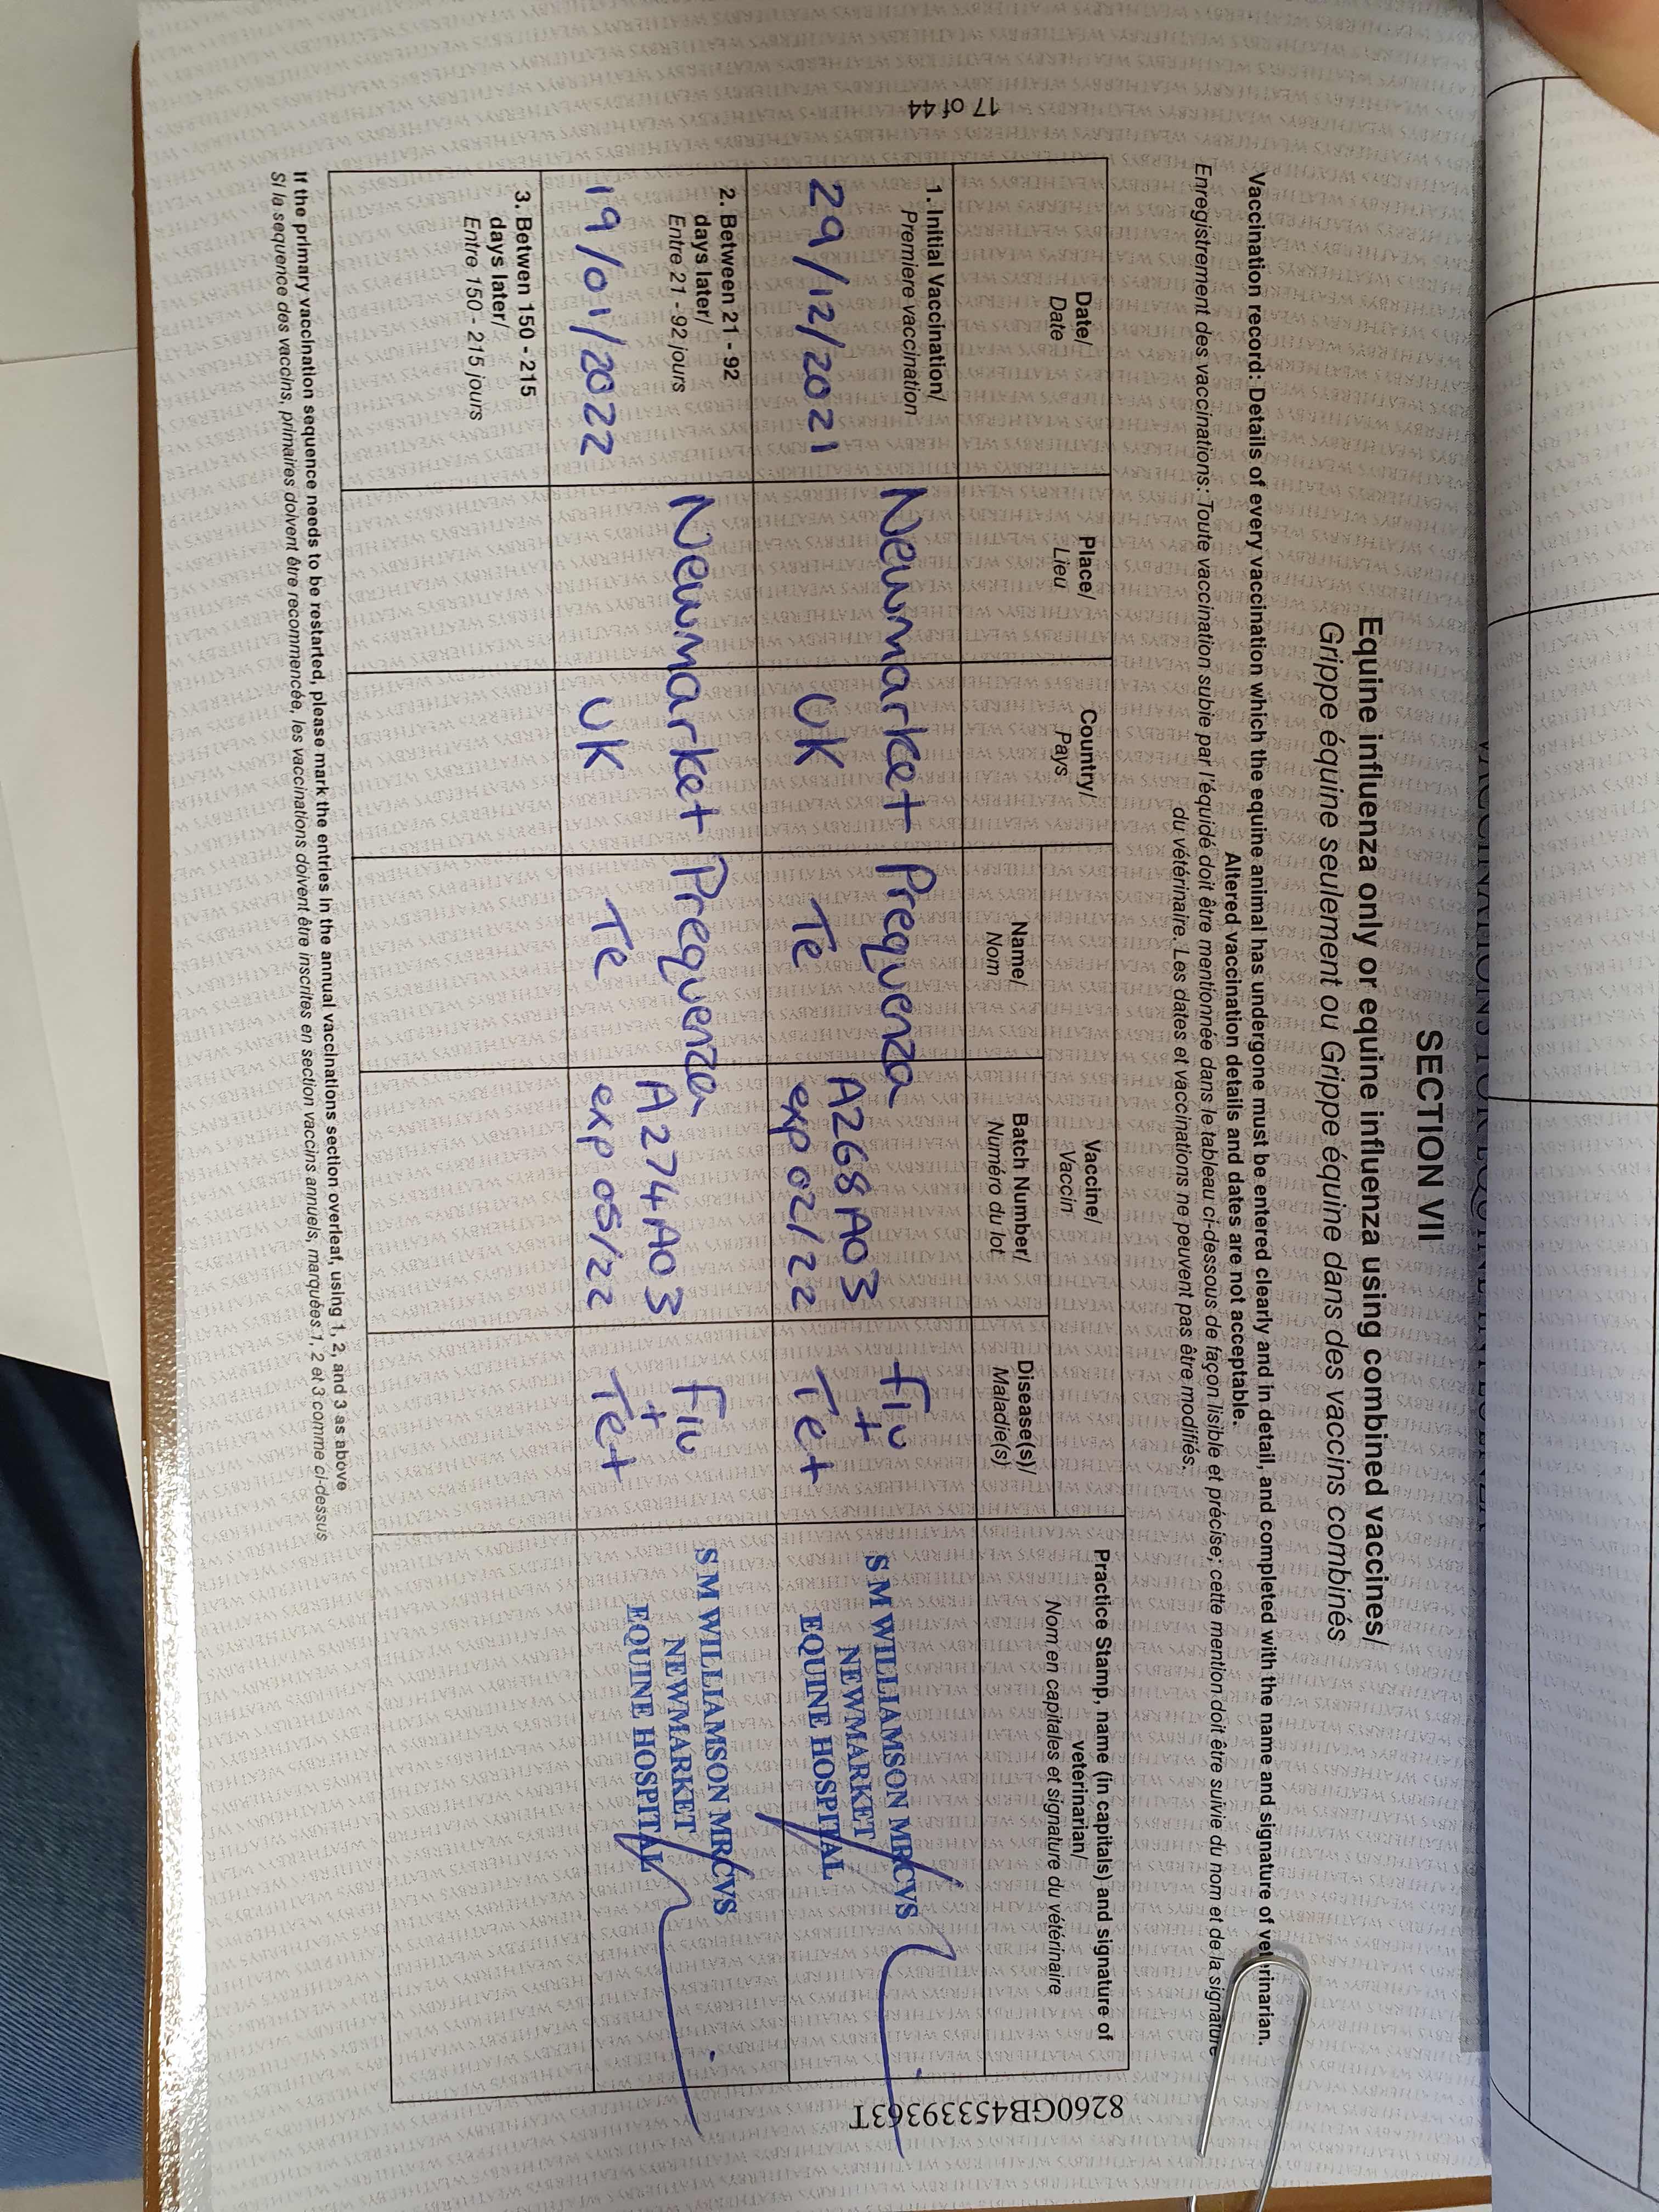 17 of 44
SECTION VII
Equine influenza only or equine influenza using combined vaccines/
Grippe équine seulement ou Grippe équine dans des vaccins combinés
Vaccination record: Details of every vaccination which the equine animal has undergone must be entered clearly and in detail, and completed with the name and signature of veterinarian.
Altered vaccination details and dates are not acceptable.
Enregistrement des vaccinations: Toute vaccination subie par l'équidé doit être mentionnée dans le tableau ci-dessous de façon lisible et précise; cette mention doit être suivie du nom et de la signature
du vétérinaire. Les dates et vaccinations ne peuvent pas être modifiés.
Date/
Date
Place/
Lieu
Country/
Pays
Vaccine/
Vaccin
Name/
Nom
Batch Number/
Numéro du lot
Disease(s)/
Maladie(s)
Practice Stamp, name (in capitals) and signature of
veterinarian/
Nom en capitales et signature du vétérinaire
1. Initial Vaccination/
Premiere vaccination
29/12/2021
Newmarket
UK
Prequenza
Te
A268A03
exp 02/22
Flu
+
Tet
S M WILLIAMSON MRCVS
NEWMARKET
EQUINE HOSPITAL
2. Between 21 - 92
days later/
Entre 21 - 92 jours
19/01/2022
Newmarket
UK
Prequenza
Te
A274A03
exp 05/22
Flu
+
Tet
S M WILLIAMSON MRCVS
NEWMARKET
EQUINE HOSPITAL
3. Betwen 150 - 215
days later/
Entre 150 - 215 jours
If the primary vaccination sequence needs to be restarted, please mark the entries in the annual vaccinations section overleaf, using 1, 2, and 3 as above
Si la sequence des vaccins, primaires doivent être recommencée, les vaccinations doivent être inscrites en section vaccins annuels, marquées 1, 2 et 3 comme ci-dessus
8260GB45339363T